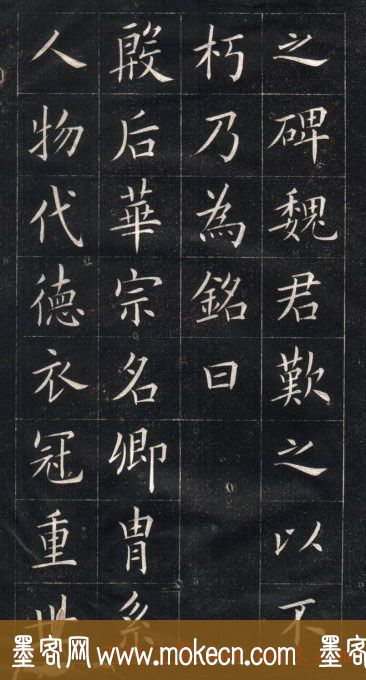 之碑魏君歎之以不
朽乃為銘曰
殷后華宗名卿冑系
人物代德衣冠重世
墨客网 www.mokecn.com 墨客